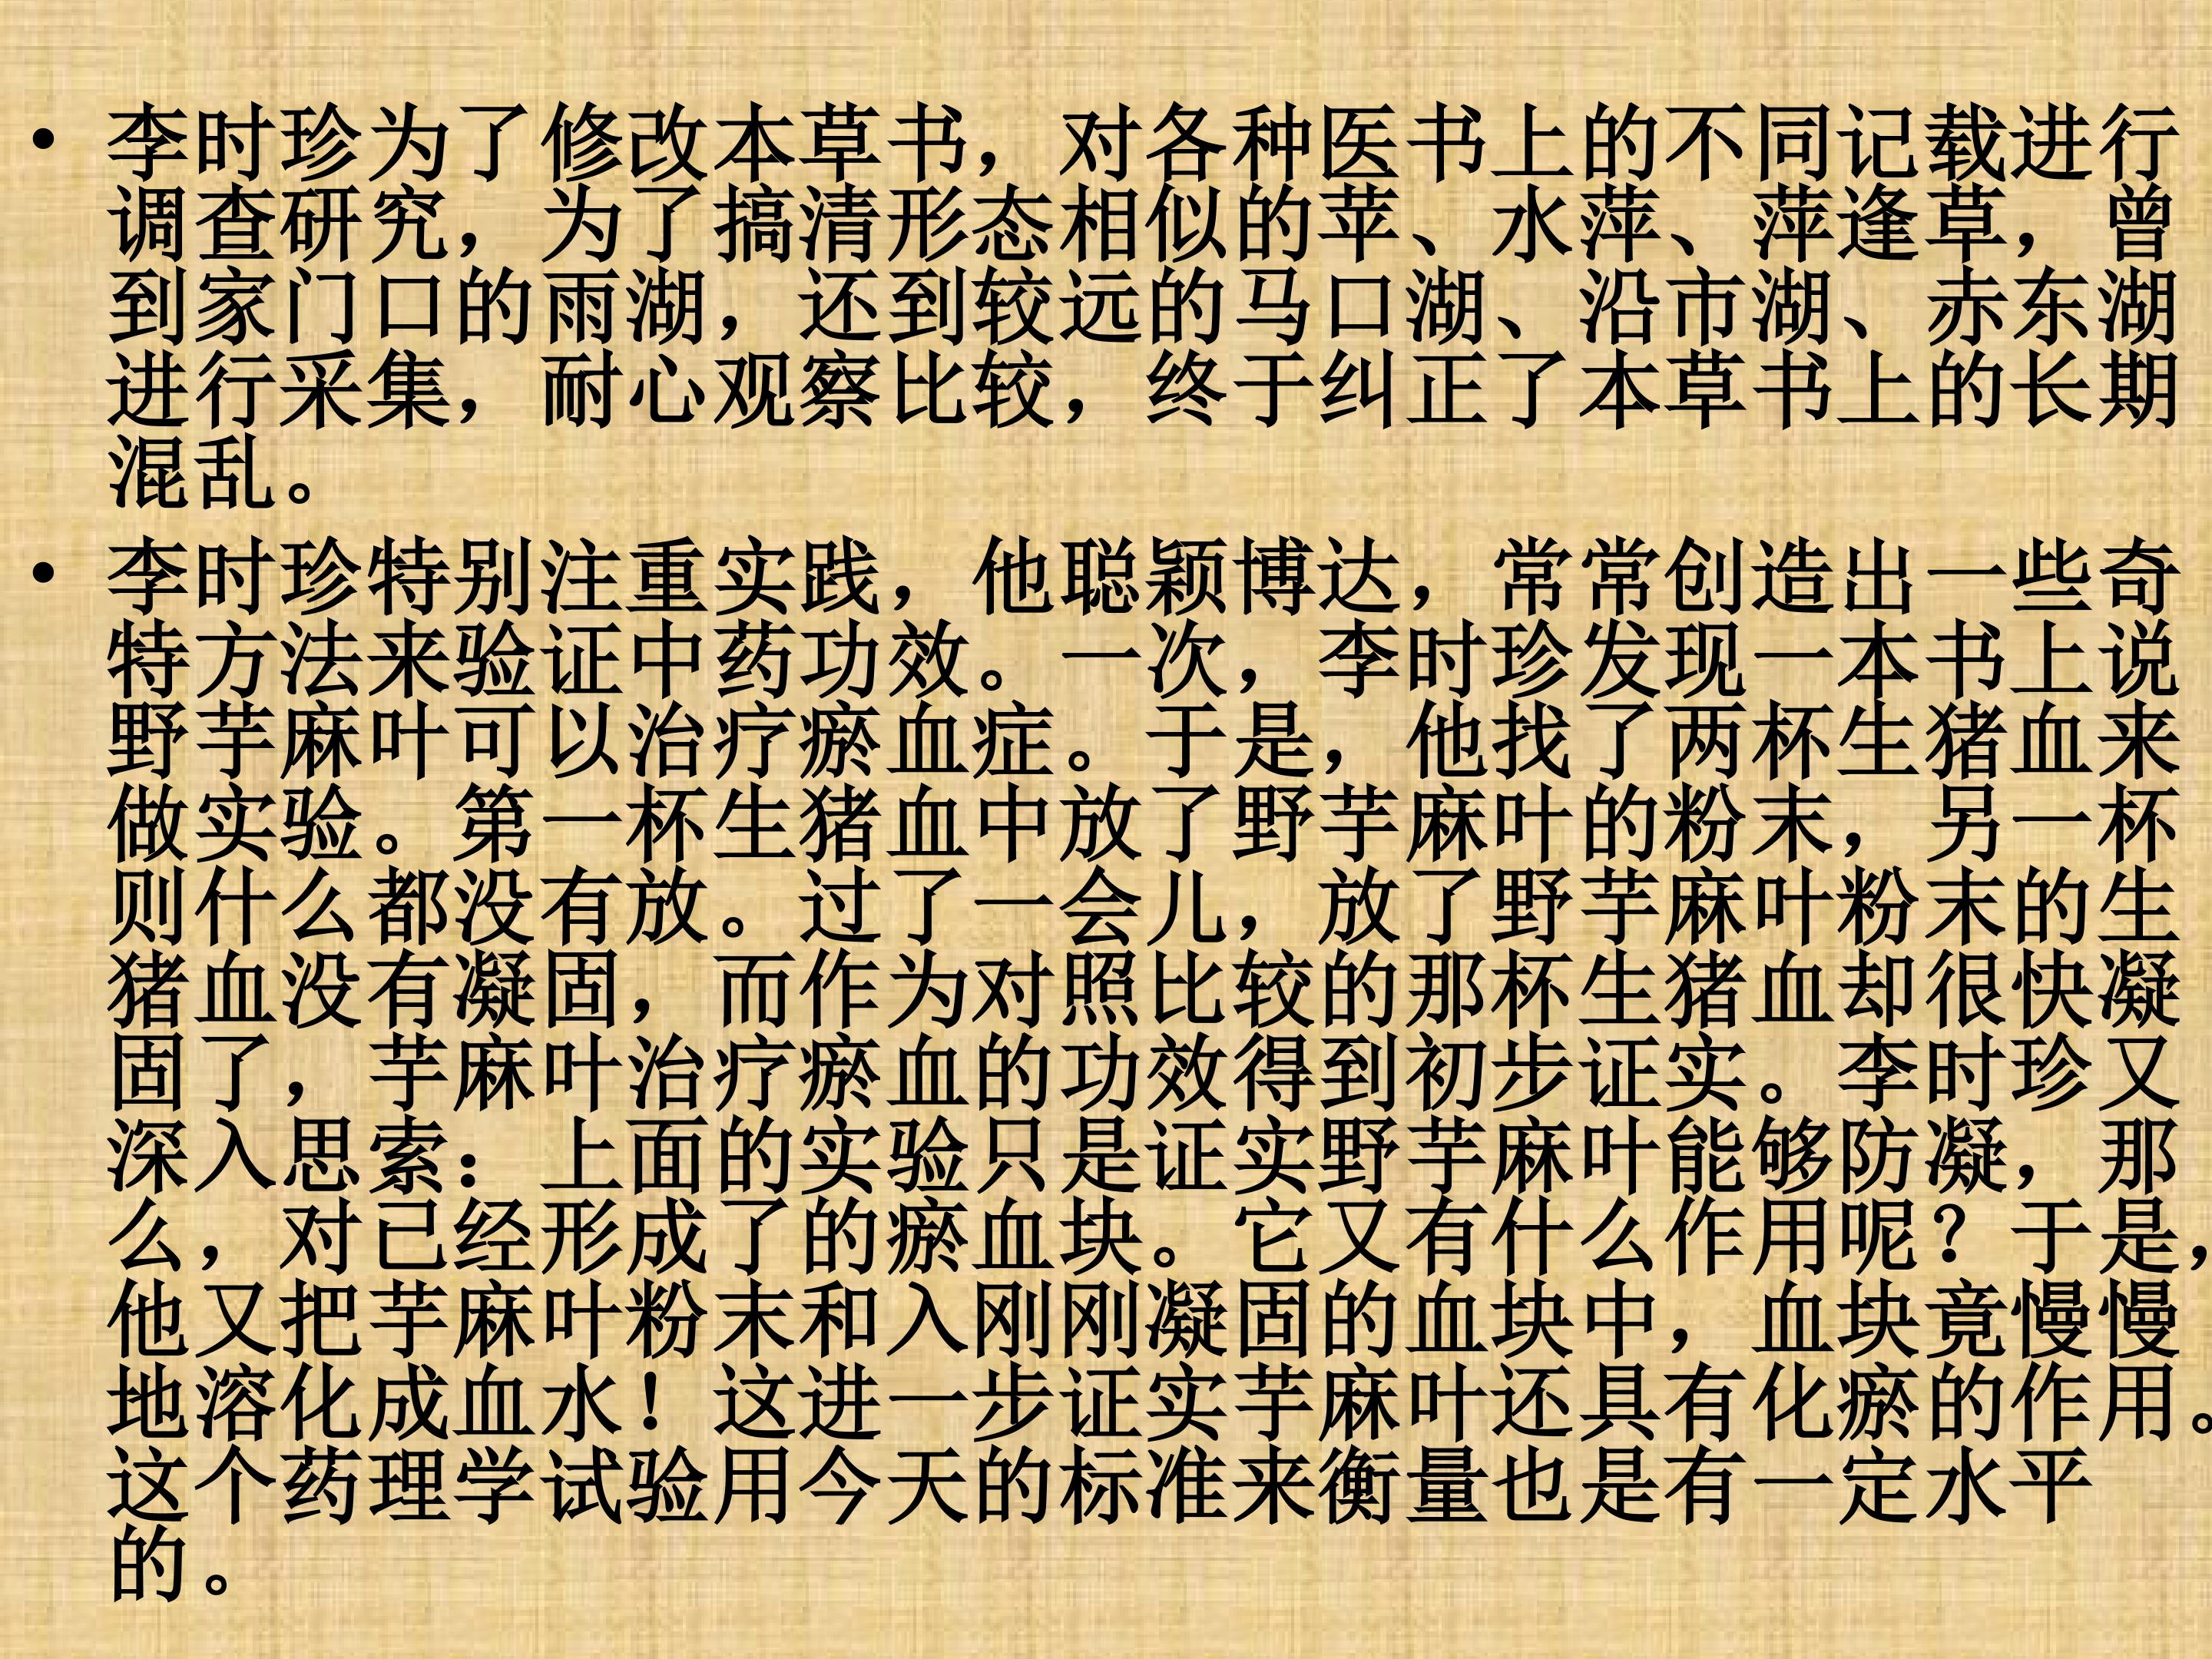 • 李时珍为了修改本草书，对各种医书上的不同记载进行
调查研究，为了搞清形态相似的苹、水萍、萍逢草，曾
到家门口的雨湖，还到较远的马口湖、沿市湖、赤东湖
进行采集，耐心观察比较，终于纠正了本草书上的长期
混乱。
• 李时珍特别注重实践，他聪颖博达，常常创造出一些奇
特方法来验证中药功效。一次，李时珍发现一本书上说
野芋麻叶可以治疗瘀血症。于是，他找了两杯生猪血来
做实验。第一杯生猪血中放了野芋麻叶的粉末，另一杯
则什么都没有放。过了一会儿，放了野芋麻叶粉末的生
猪血没有凝固，而作为对照比较的那杯生猪血却很快凝
固了，芋麻叶治疗瘀血的功效得到初步证实。李时珍又
深入思索：上面的实验只是证实野芋麻叶能够防凝，那
么，对已经形成了的瘀血块。它又有什么作用呢？于是，
他又把芋麻叶粉末和入刚刚凝固的血块中，血块竟慢慢
地溶化成血水！这进一步证实芋麻叶还具有化瘀的作用。
这个药理学试验用今天的标准来衡量也是有一定水平
的。